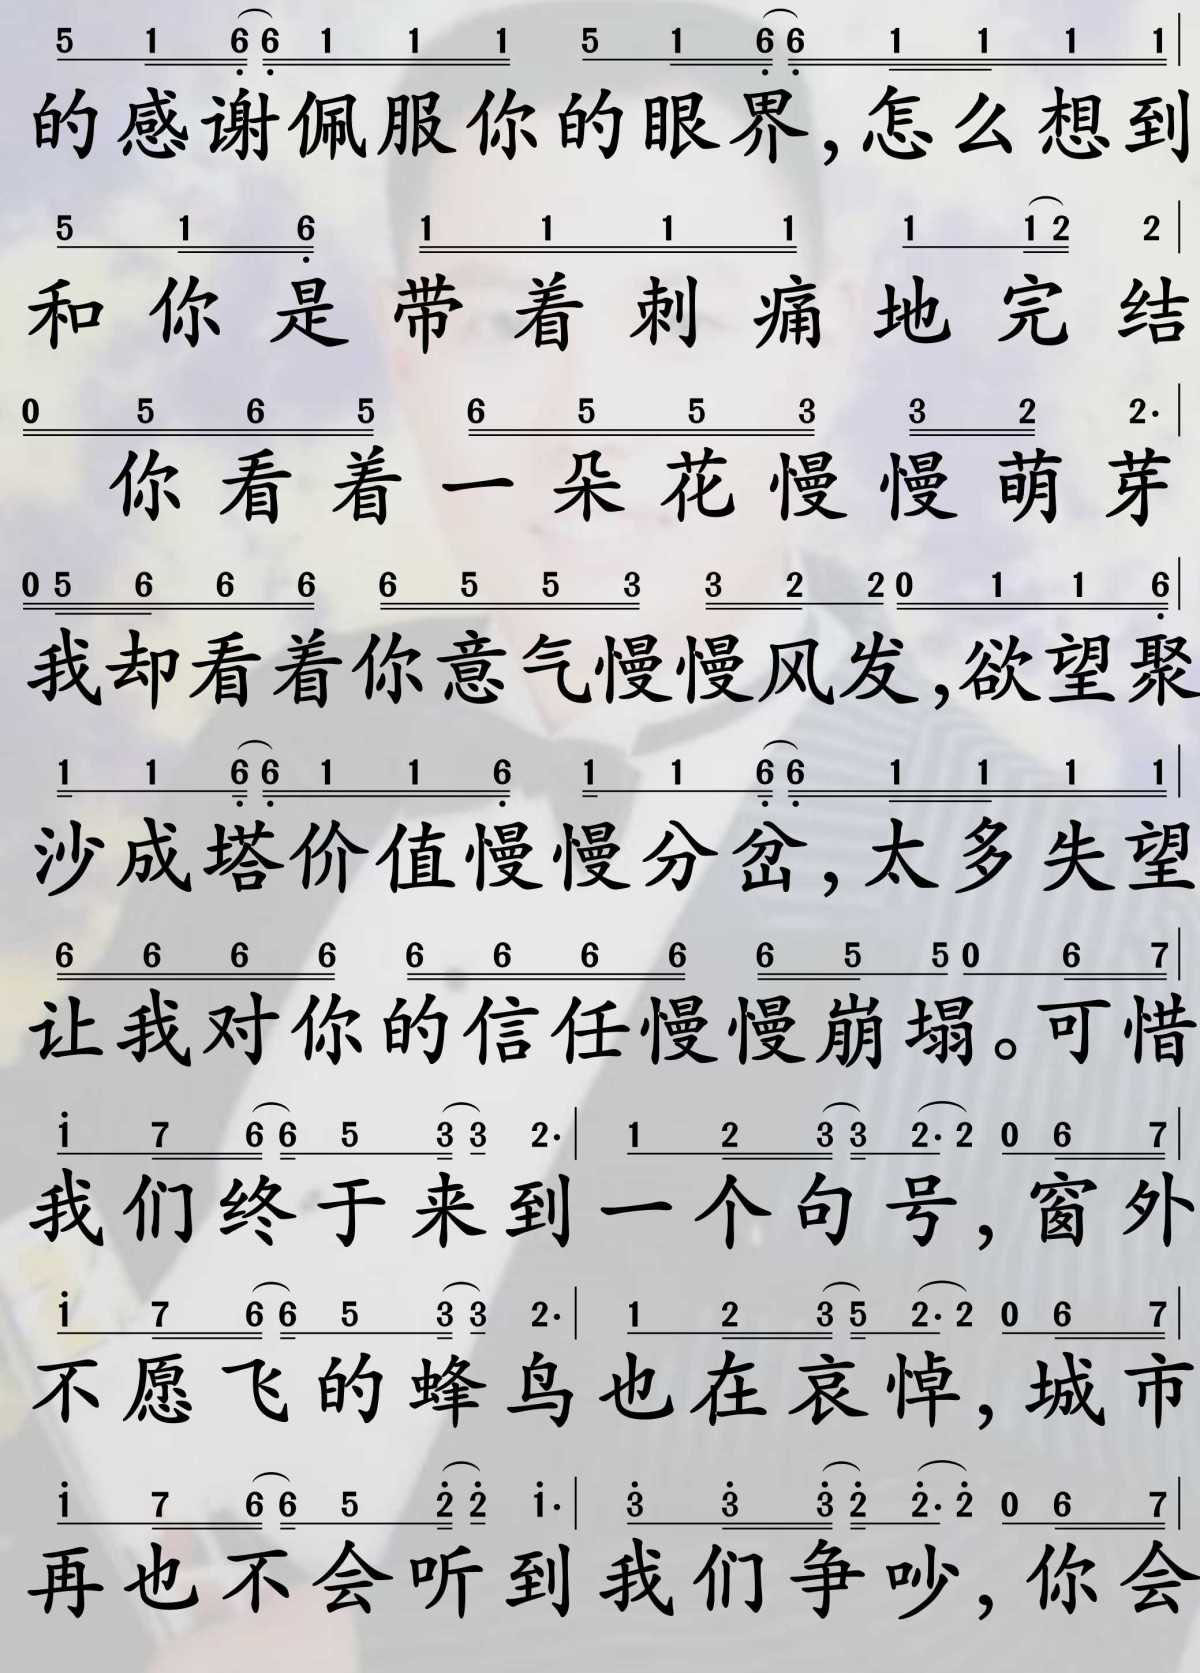 5 1 6 6 1 1 1 5 1 6 6 1 1 1 1
的感谢佩服你的眼界,怎么想到
5 1 6 1 1 1 1 1 1 2 2
和你是带着刺痛地完结
0 5 6 5 6 5 5 3 3 2 2·
你看着一朵花慢慢萌芽
0 5 6 6 6 6 5 5 3 3 2 2 0 1 1 6
我却看着你意气慢慢风发,欲望聚
1 1 6 6 1 1 6 1 1 6 6 1 1 1 1
沙成塔价值慢慢分岔,太多失望
6 6 6 6 6 6 6 6 6 5 5 0 6 7
让我对你的信任慢慢崩塌。可惜
1 7 6 6 5 3 3 2· 1 2 3 3 2· 2 0 6 7
我们终于来到一个句号,窗外
1 7 6 6 5 3 3 2· 1 2 3 5 2· 2 0 6 7
不愿飞的蜂鸟也在哀悼,城市
1 7 6 6 5 2 2 1· 3 3 3 2 2· 2 0 6 7
再也不会听到我们争吵,你会